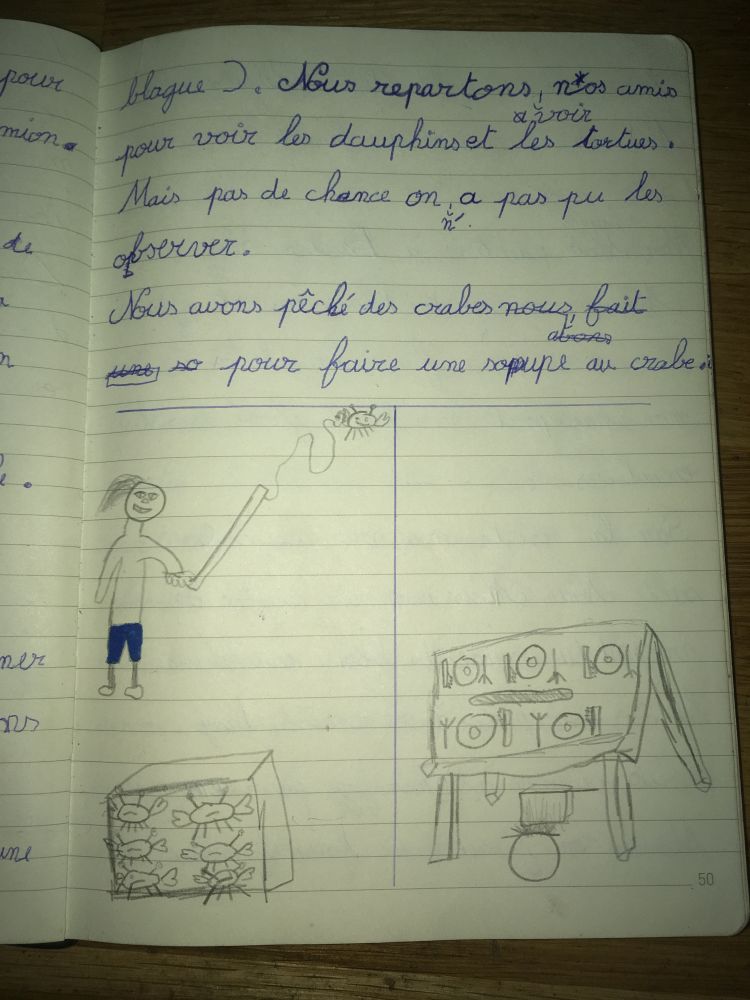 pour
mion.
de
n
e.
ner
ons
une
blague ). Nous repartons, nos amis
à voir
pour voir les dauphins et les tortues.
Mais pas de chance on a pas pu les
n'
observer.
Nous avons pêché des crabes nous fait
avons
une so pour faire une soupe au crabe.
50